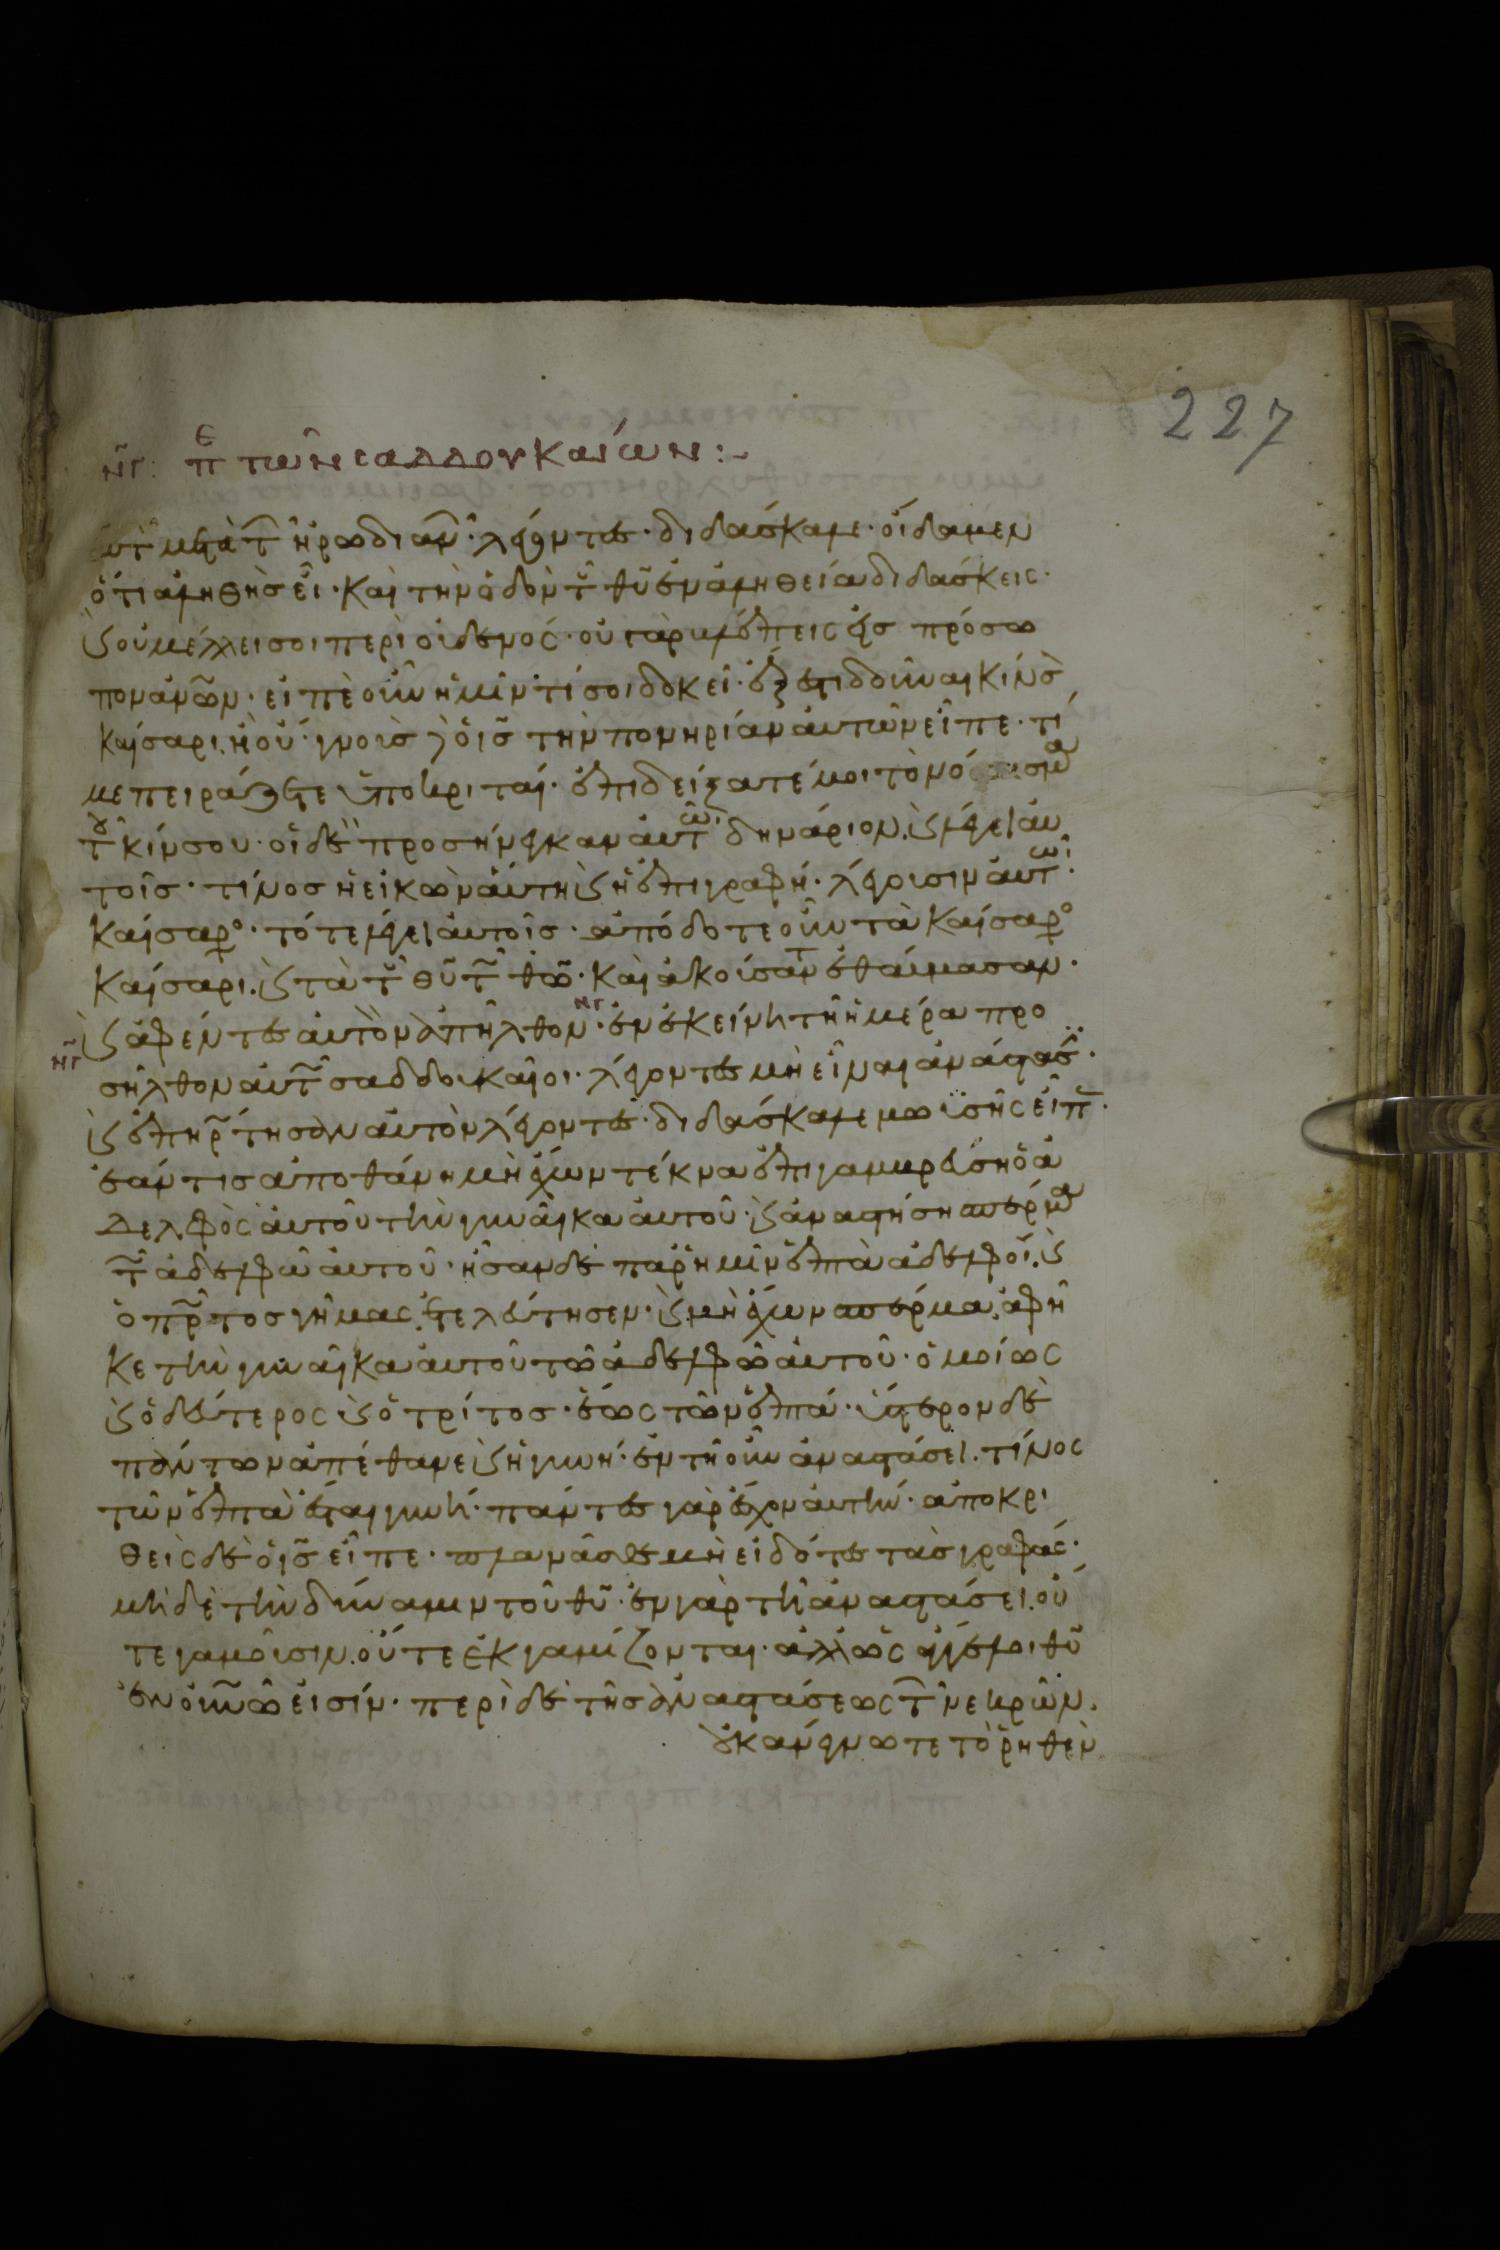 227
νγ: πε τῶν σαδδουκαίων :~
αὐτ μετὰ τ ἡρωδιαν· λέγοντες· διδάσκαλε· οἴδαμεν
ὅτι ἀληθὴς εἶ· καὶ τὴν ὁδὸν τοῦ θῦ ἐν ἀληθεία διδάσκεις·
ϗ οὐ μέλλει σοι περὶ οὐδενός· οὐ γὰρ βλέπεις εἰς πρόσω
πον ἀνων· εἰπὲ οὖν ἡμῖν· τί σοι δοκεῖ· ἔξεστι δοῦναι κῖνσο
καίσαρι. ἢ οὔ· γνοὺς δὲ ὁ ις τὴν πονηρίαν αὐτῶν εἶπε· τί
με πειράζετε ὑποκριταί· ἐπιδείξατέ μοι τὸ νό σμα
τοῦ κίνσου· οἱ δὲ προσήνεγκαν αὐτῶ δηνάριον. ϗ λέγει αὐ
τοῖς· τίνος ἡ εἰκὼν αὕτη ϗ ἡ ἐπιγραφή· λέγουσιν αὐτῶ·
καίσαρο· τότε λέγει αὐτοῖς· ἀπόδοτε οὖν τὰ καίσαρο
καίσαρι. ϗ τὰ τοῦ θῦ τῶ θω· καὶ ἀκούσαντ ἐθαύμασαν·
ϗ ἀφέντες αὐτὸν ἀπῆλθον· νγ ἐν ἐκείνη τῆ ἡμέρα προ
νγ σῆλθον αὐτῶ σαδδουκαῖοι· λέγοντες μὴ εἶναι ἀνάστασ·
ϗ ἐπηρώτησαν αὐτὸν λέγοντες· διδάσκαλε μωϋσῆς εἶπ·
ἐάν τις ἀποθάνη μὴ ἔχων τέκνα ἐπιγαμβρεύση ὁ ἀ
δελφὸς αὐτοῦ τὴν γυναῖκα αὐτοῦ· ϗ ἀναστήση σπέρμα
τῶ ἀδελφῶ αὐτοῦ· ἦσαν δὲ παρ ἡμῖν ἑπτὰ ἀδελφοί. ϗ
ὁ πρῶτος γήμας. ἐτελεύτησεν· ϗ μὴ ἔχων σπέρμα. ἀφῆ
κε τὴν γυναῖκα αὐτοῦ τῶ ἀδελφῶ αὐτοῦ· ὁμοίως
ϗ ὁ δεύτερος ϗ ὁ τρίτος· ἕως τῶν ἑπτά· ὕστερον δὲ
πάντων ἀπέθανε ϗ ἡ γυνή· ἐν τῆ οὖν ἀναστάσει. τίνος
τῶν ἑπτὰ ἔσται γυνή· πάντες γὰρ ἔσχον αὐτήν· ἀποκρι
θεὶς δὲ ὁ ις εἶπε· πλανᾶσθε μὴ εἰδότες τὰς γραφάς·
μηδὲ τὴν δύναμιν τοῦ θῦ· ἐν γὰρ τῆ ἀναστάσει. οὔ
τε γαμοῦσιν. οὔτε ἐκγαμίζονται· ἀλλ ὡς ἄγγελοι θῦ
ἐν οὐνῶ εἰσίν· περὶ δὲ τῆς ἀναστάσεως τ νεκρῶν.
οὐκ ἀνέγνωτε τὸ ῥηθὲν